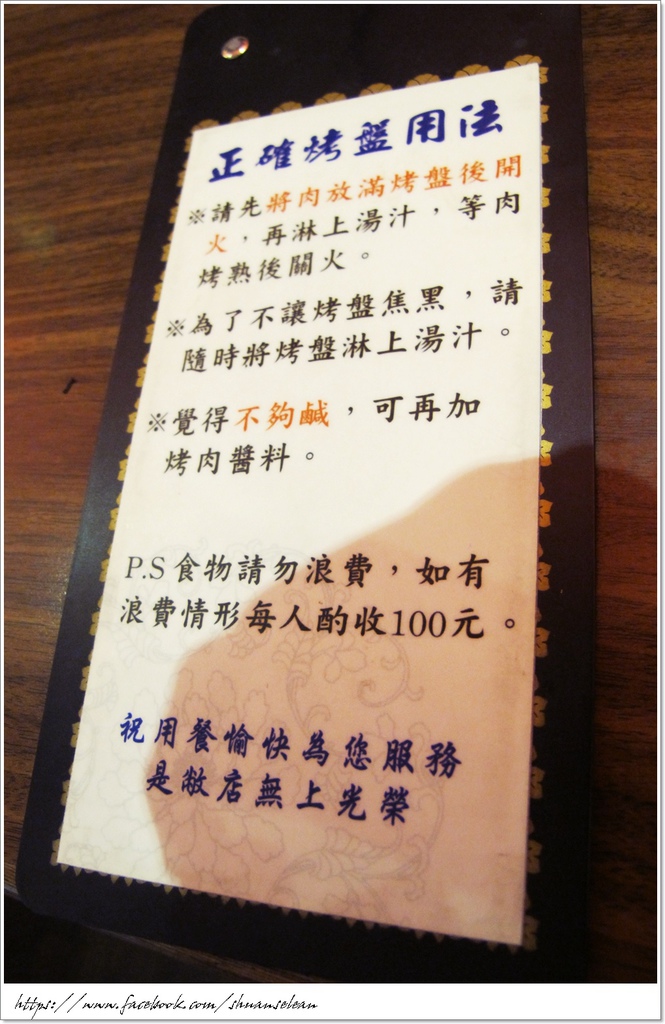 正確烤盤用法
※請先將肉放滿烤盤後開
火，再淋上湯汁，等肉
烤熟後關火。
※為了不讓烤盤焦黑，請
隨時將烤盤淋上湯汁。
※覺得不夠鹹，可再加
烤肉醬料。
P.S食物請勿浪費，如有
浪費情形每人酌收100元。
祝用餐愉快為您服務
是敝店無上光榮
https://www.facebook.com/shuanselean